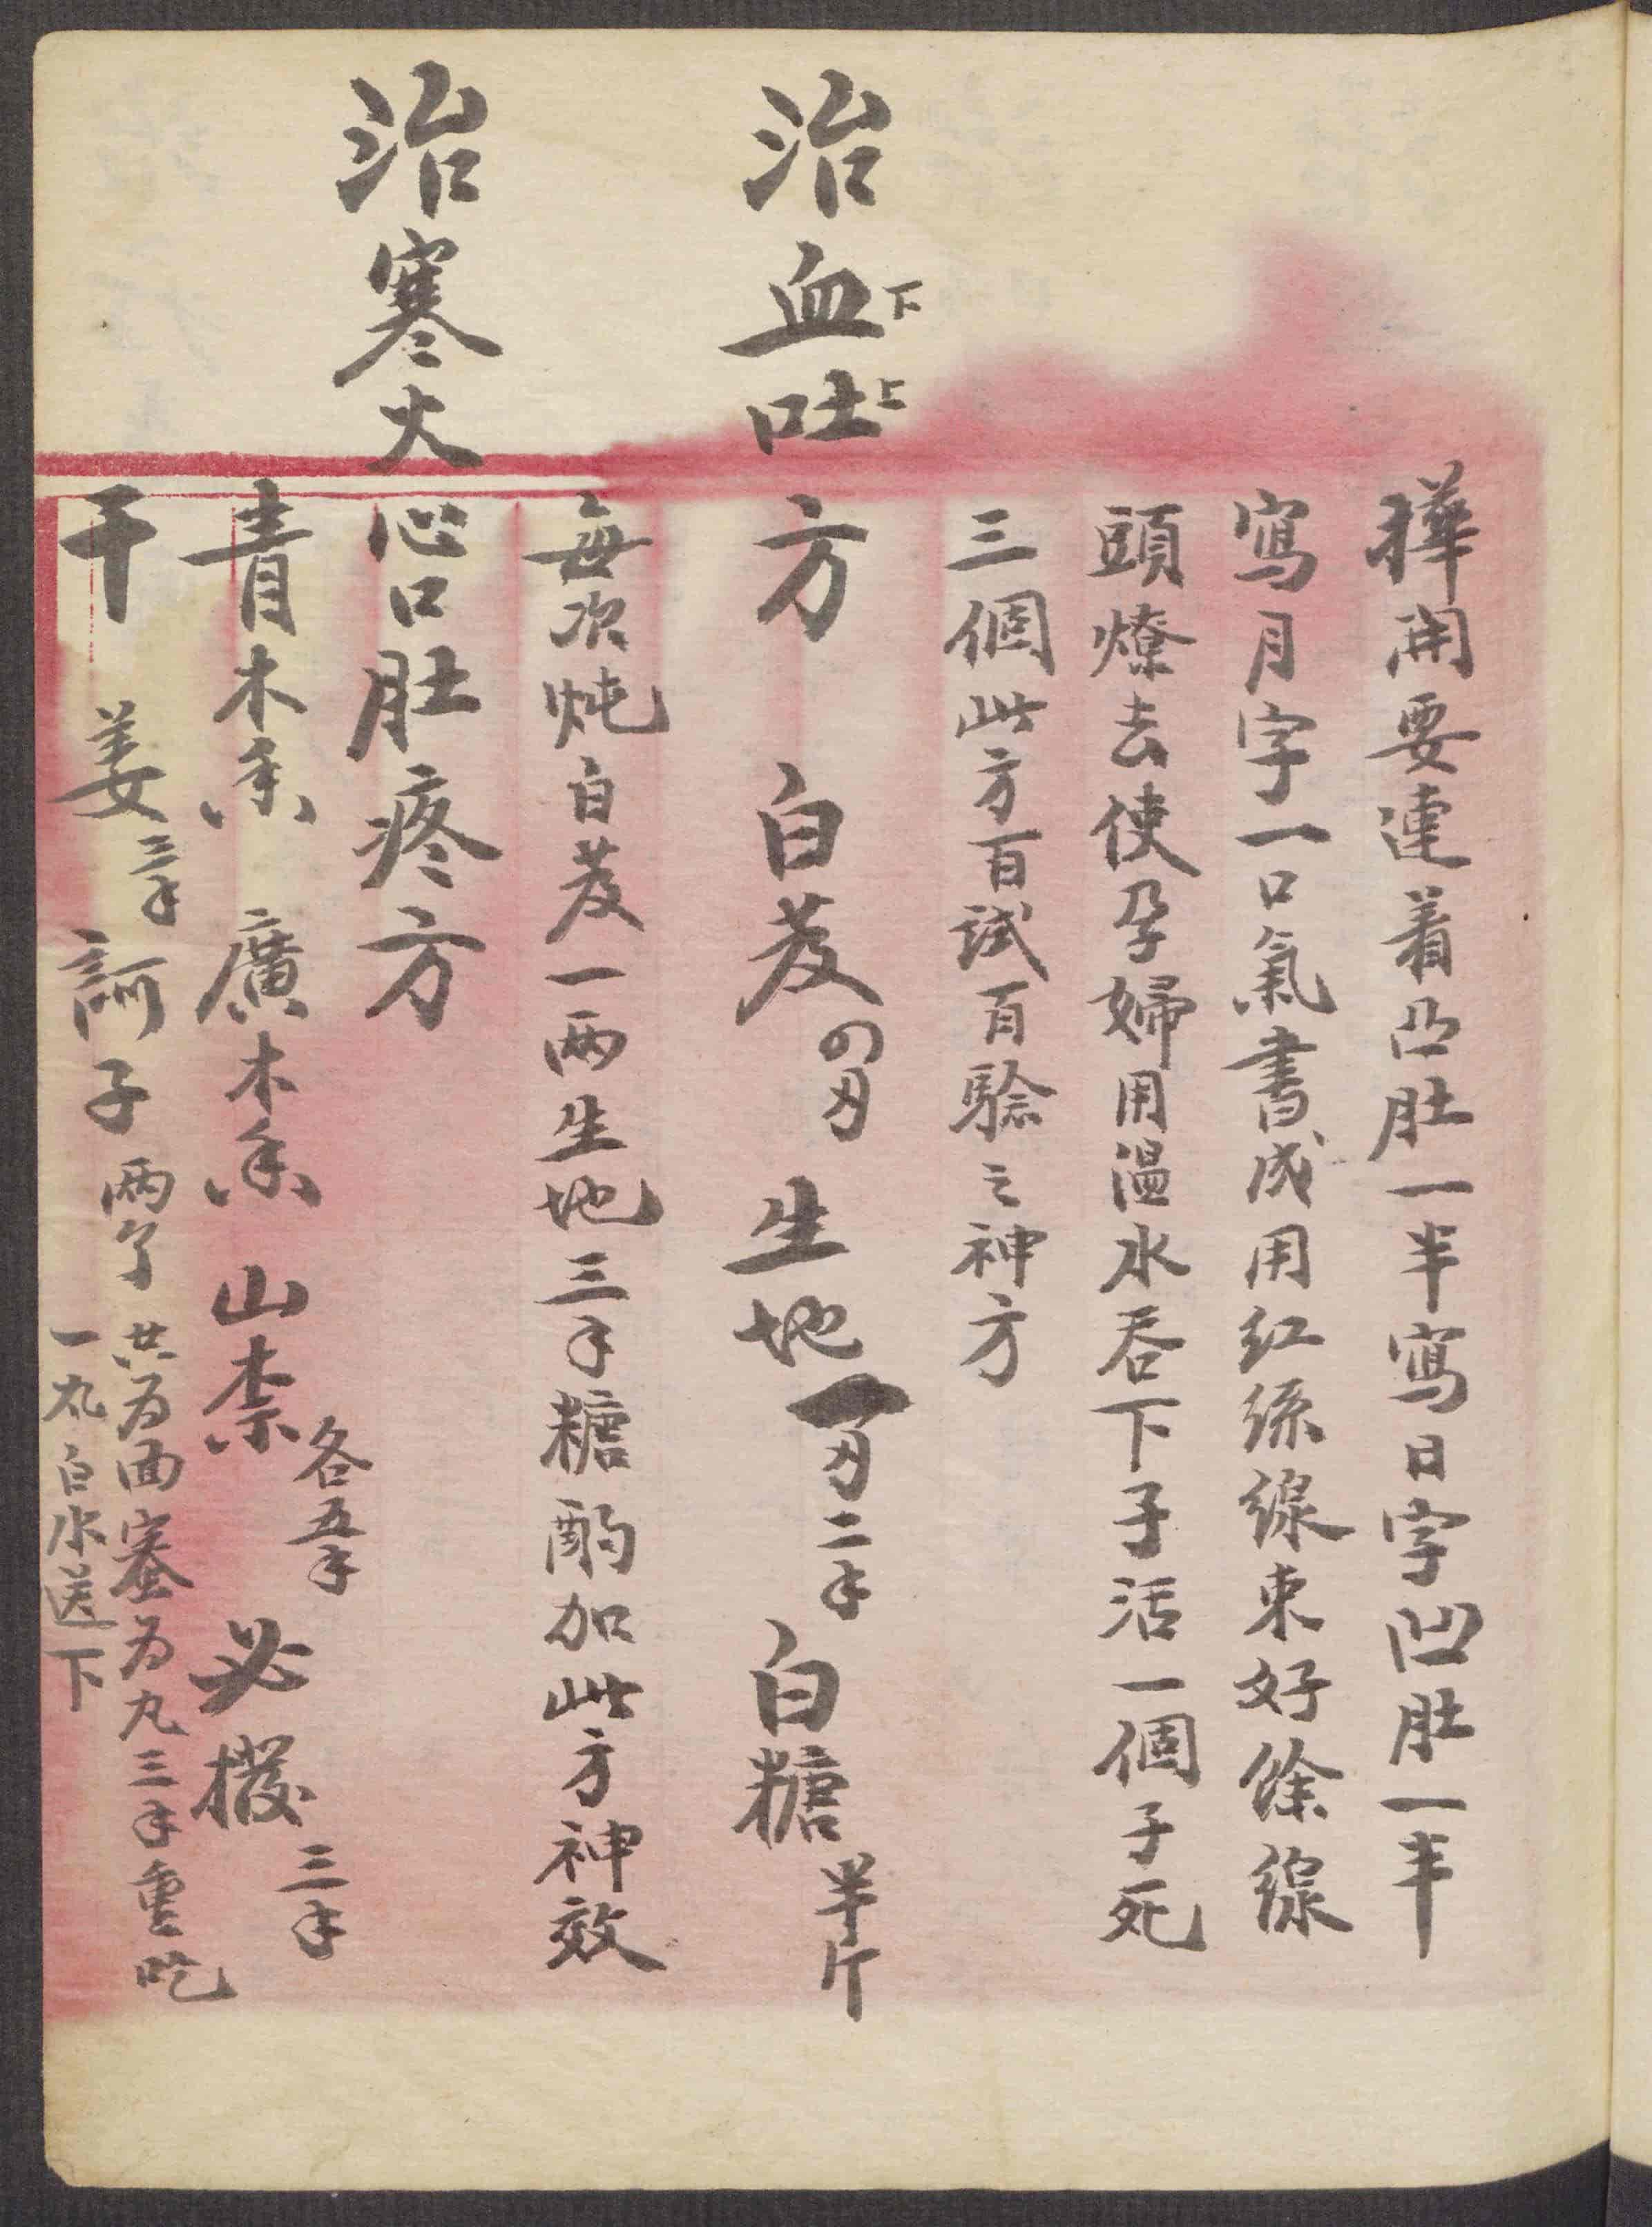 開要連着凸肚一半寫日字凹肚一半
寫月字一口氣書成用红絲線束好餘線
頭燎去使孕婦用温水吞下子活一個子死
三個此方百試百驗之神方
治血下吐上方 白芨四兩 生地一兩二錢 白糖半斤
每次炖白芨一两生地三錢糖酌加此方神效
治寒火心口肚疼方
青木香 廣木香 山柰各五錢 必撥三錢
干姜三錢 訶子两个 共为面蜜为丸三錢重吃
一丸白水送下